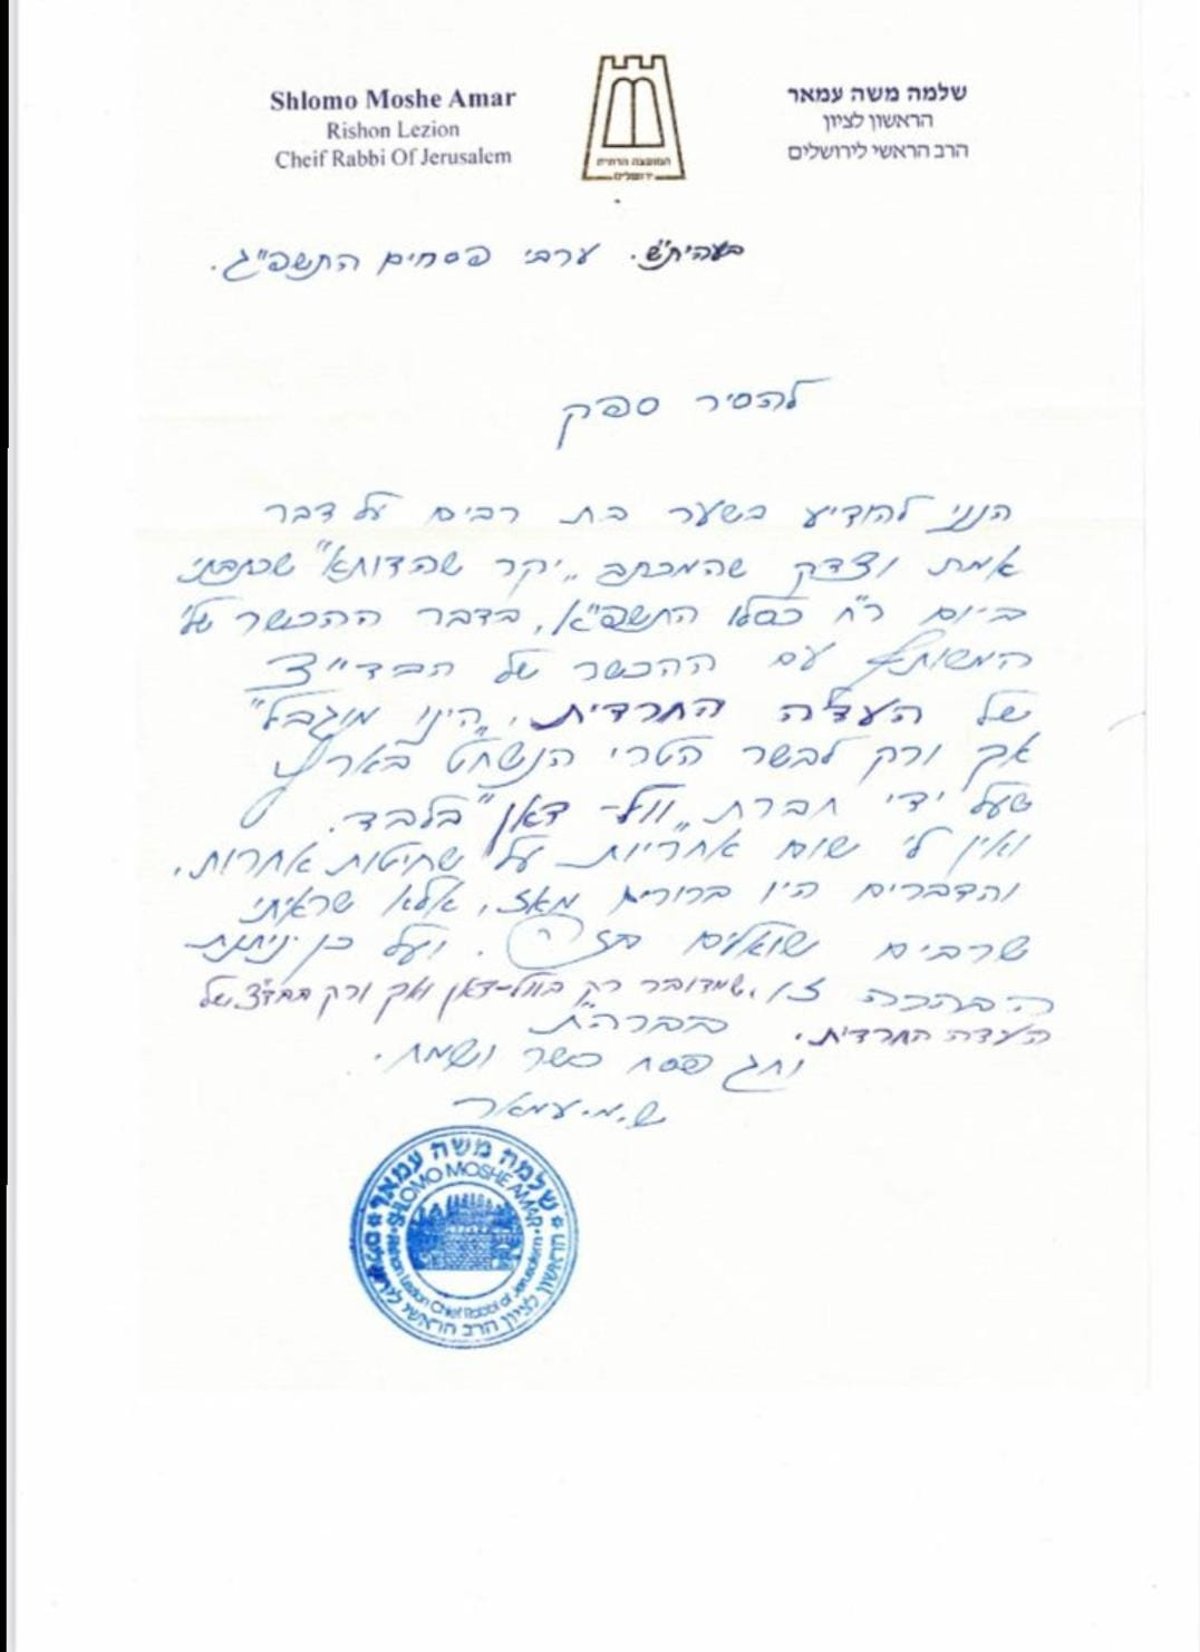 Shlomo Moshe Amar
Rishon Lezion
Cheif Rabbi Of Jerusalem
המועצה הדתית
ירושלים
שלמה משה עמאר
הראשון לציון
הרב הראשי לירושלים
בעהית"ש. ערבי פסחים התשפ"ג.
להסיר ספק
הנני להודיע בשער בת רבים על דבר
אמת וצדק שהמכתב "יקר שהדותא" שכתבתי
ביום ר"ח כסלו התשפ"א, בדבר ההכשר שלי
המשותף עם ההכשר של הבד"ץ
של העדה החרדית, "הינו מוגבל"
אך ורק לבשר הטרי הנשחט בארץ
שעל ידי חברת "וול- דאן" בלבד.
ואין לי שום אחריות על שחיטות אחרות,
והדברים היו ברורים מאז, אלא שראיתי
שרבים שואלים בזה. ועל כן ניתנת
הבהרה זו, שמדובר רק בוול-דאן ואך ורק בבד"צ של
העדה החרדית. בברהת
וחג פסח כשר ושמח.
ש.מ. עמאר
שלמה משה עמאר
SHLOMO MOSHE AMAR
Rishon Lezion Chief Rabbi of Jerusalem
הראשון לציון הרב הראשי לירושלים